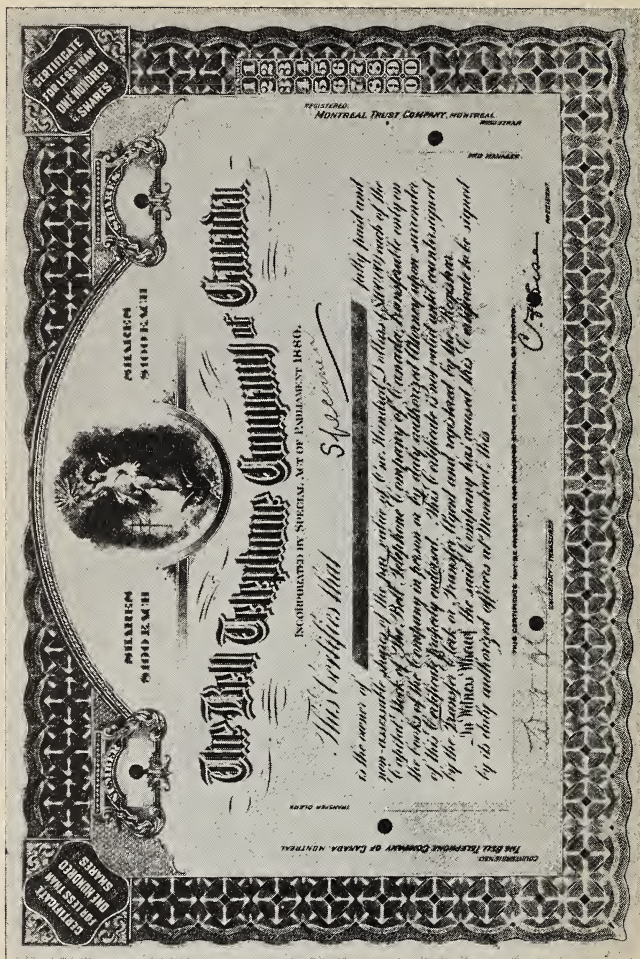 CERTIFICATE
FOR LESS THAN
ONE HUNDRED
SHARES
CERTIFICATE
FOR LESS THAN
ONE HUNDRED
SHARES
SHARES
SHARES
SHARES
$100 EACH
SHARES
$100 EACH
The Bell Telephone Company of Canada.
INCORPORATED BY SPECIAL ACT OF PARLIAMENT 1880.
This Certifies that Specimen
is the owner of fully paid and
non-assessable shares of the par value of One Hundred Dollars ($100.00) each of the
Capital Stock of The Bell Telephone Company of Canada, transferable only on
the books of the Company in person or by duly authorized Attorney upon surrender
of this Certificate properly endorsed. This Certificate is not valid until countersigned
by the Transfer Clerk or Transfer Agent and registered by the Registrar.
In Witness Whereof the said Company has caused this Certificate to be signed
by its duly authorized officers at Montreal, this
THIS CERTIFICATE MAY BE PRESENTED FOR TRANSFER EITHER IN MONTREAL OR TORONTO.
SECRETARY-TREASURER
PRESIDENT
COUNTERSIGNED:
THE BELL TELEPHONE COMPANY OF CANADA, MONTREAL
TRANSFER CLERK
REGISTERED:
MONTREAL TRUST COMPANY, MONTREAL
REGISTRAR
PRO MANAGER
1 2 3 4 5 6 7 8 9 0
1 2 3 4 5 6 7 8 9 0